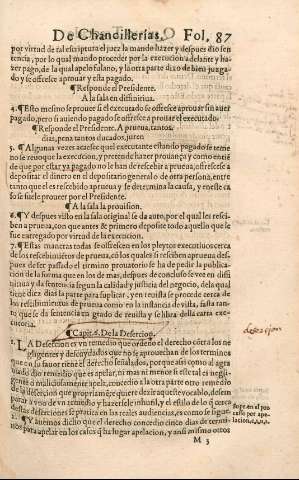 De Chancillerias. Fol. 87
por virtud de tal escriptura el juez la mando hazer y despues dio sen
tencia, por lo qual mando proceder por la execucion adelante y ha-
zer pago, de la qual apelo fulano, y la otra parte dixo de bien juzga-
do y se offresce aprouar y esta pagado.
¶ Responde el Presidente.
A la sala en diffinitiua.
4. ¶ Esto mesmo se prouee si el executado se offresce aprouar sin auer
pagado, pero si auiendo pagado se offresce a prouar el executado:
¶ Responde el Presidente. A prueua, tantos
dias, pena tantos ducados, juren
5. ¶ Algunas vezes acaesce quel executante estando pagado se teme
no se reuoque la execucion, y pretende hazer prouança y como entiẽ
de que por estar ya pagado no se han de rescebir a prueua, offresce a
depositar el dinero en el depositario general o de otra persona, entre
tanto que el es rescebido aprueua y se determina la causa, y en este ca
so se suele proueer por el Presidente.
¶ A la sala la prouission.
6. ¶ Y despues visto en la sala original se da auto, por el qual les resci
ben a prueua, con que antes & primero deposite todo aquello que le
fue entregado por virtud de la execucion.
7. ¶ Estas maneras todas se offrescen en los pleytos executiuos cerca
de los rescebimiẽtos de prueua, cõ los quales si resciben aprueua des
pues de ser passado el termino prouatorio se ha de pedir la publica-
cion de la misma que en los de mas, y despues de concluso se vee en diffi
nitiua y da sentencia segun la calidad y justicia del negocio, de la qual
tiene diez dias la parte para suplicar, y en reuista se procede cerca de
los rescibimientos de prueua como en la instancia de vista, fasta tan-
to que se da sentencia en grado de reuista y se libra della carta exe-
cutoria.
¶ Capit. 6. De la Desercion.
1. LA Desercion es vn remedio que ordeno el derecho cõtra los ne
gligentes y descuydados que no se aprouechan de los terminos
que en su fauor tiene el derecho señalados, porque assi como al agra
uiado dio remedio que es apelar, ni mas ni menos si este tal es negli-
gente o maliciosamente apela, concedio a la otra parte otro remedio
de la desercion,
destas deserciones se pratica en las reales audiencias, es como se sigue.
2. ¶ Y auemos dicho que el derecho concedio cinco dias de termi-
nos para apelar en los casos que ha lugar apelacion, y ansi mismo otros
M 3
desercion